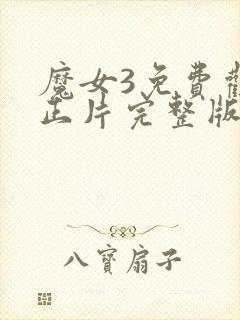 魔女3免費
正片完整版
八寶扇子